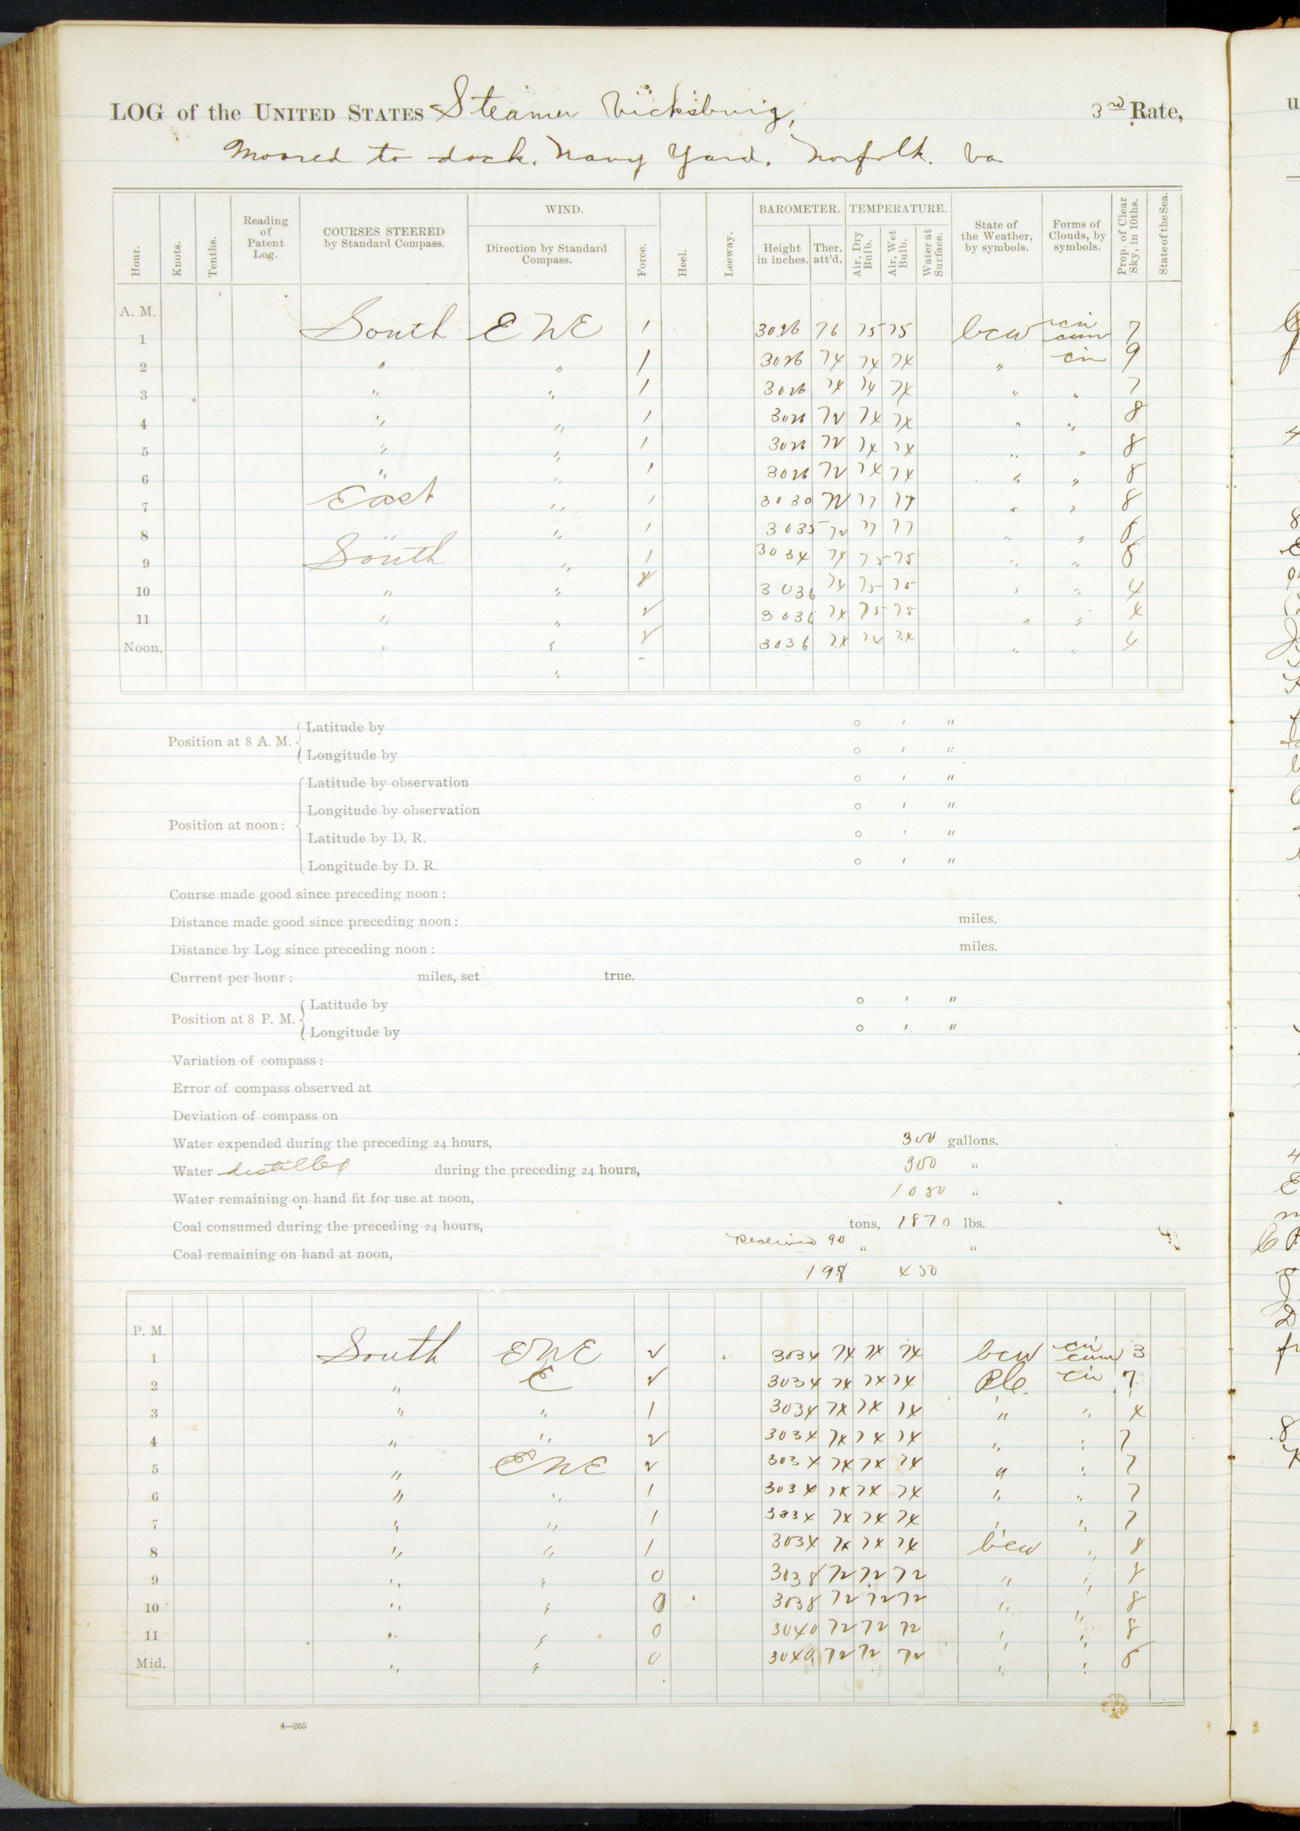 LOG of the UNITED STATES Steamer Vicksburg, 3rd Rate,
Moored to dock, Navy Yard, Norfolk. Va
Hour. Knots. Tenths. Reading of Patent Log. COURSES STEERED by Standard Compass. WIND. Direction by Standard Compass. Force. Heel. Leeway. BAROMETER. Height in inches. Ther. att'd. TEMPERATURE. Air, Dry Bulb. Air, Wet Bulb. Water at Surface. State of the Weather, by symbols. Forms of Clouds, by symbols. Prop. of Clear Sky, in 10ths. State of the Sea.
A. M.
1 South ENE 1 3026 76 75 75 bcw cir cum 7
2 " " 1 3026 74 74 74 " cir 9
3 " " 1 3026 74 74 74 " " 7
4 " " 1 3026 72 74 74 " " 8
5 " " 1 3026 72 74 74 " " 8
6 " " 1 3026 72 74 74 " " 8
7 East " 1 3030 72 77 77 " " 8
8 " " 1 3035 72 77 77 " "
9 South " 1 3034 74 75 75 " " 8
10 " " 2 3036 74 75 75 " " 4
11 " " 2 3036 74 75 75 " " 4
Noon. " " 2 3036 74 74 74 " " 4
Position at 8 A. M. Latitude by ° ' "
Longitude by ° ' "
Position at noon: Latitude by observation ° ' "
Longitude by observation ° ' "
Latitude by D. R. ° ' "
Longitude by D. R. ° ' "
Course made good since preceding noon:
Distance made good since preceding noon: miles.
Distance by Log since preceding noon: miles.
Current per hour: miles, set true.
Position at 8 P. M. Latitude by ° ' "
Longitude by ° ' "
Variation of compass:
Error of compass observed at
Deviation of compass on
Water expended during the preceding 24 hours, 300 gallons.
Water distilled during the preceding 24 hours, 300 "
Water remaining on hand fit for use at noon, "
Coal consumed during the preceding 24 hours, tons, 1870 lbs.
Received 90
Coal remaining on hand at noon, " "
198 430
P. M.
1 South ENE 2 3034 74 74 74 bcw cir cum 3
2 " E 2 3034 74 74 74 cir 7
3 " " 1 3034 74 74 74 " " 4
4 " " 2 3034 74 74 74 " " 7
5 " ENE 2 3034 74 74 74 " " 7
6 " " 1 3034 74 74 74 " " 7
7 " " 1 3034 74 74 74 " " 7
8 " " 1 3034 74 74 74 bcw " 8
9 " " 0 3038 72 72 72 " " 8
10 " " 0 3038 72 72 72 " " 8
11 " " 0 3040 72 72 72 " " 8
Mid. " " 0 3040 72 72 72 " " 8
4—265